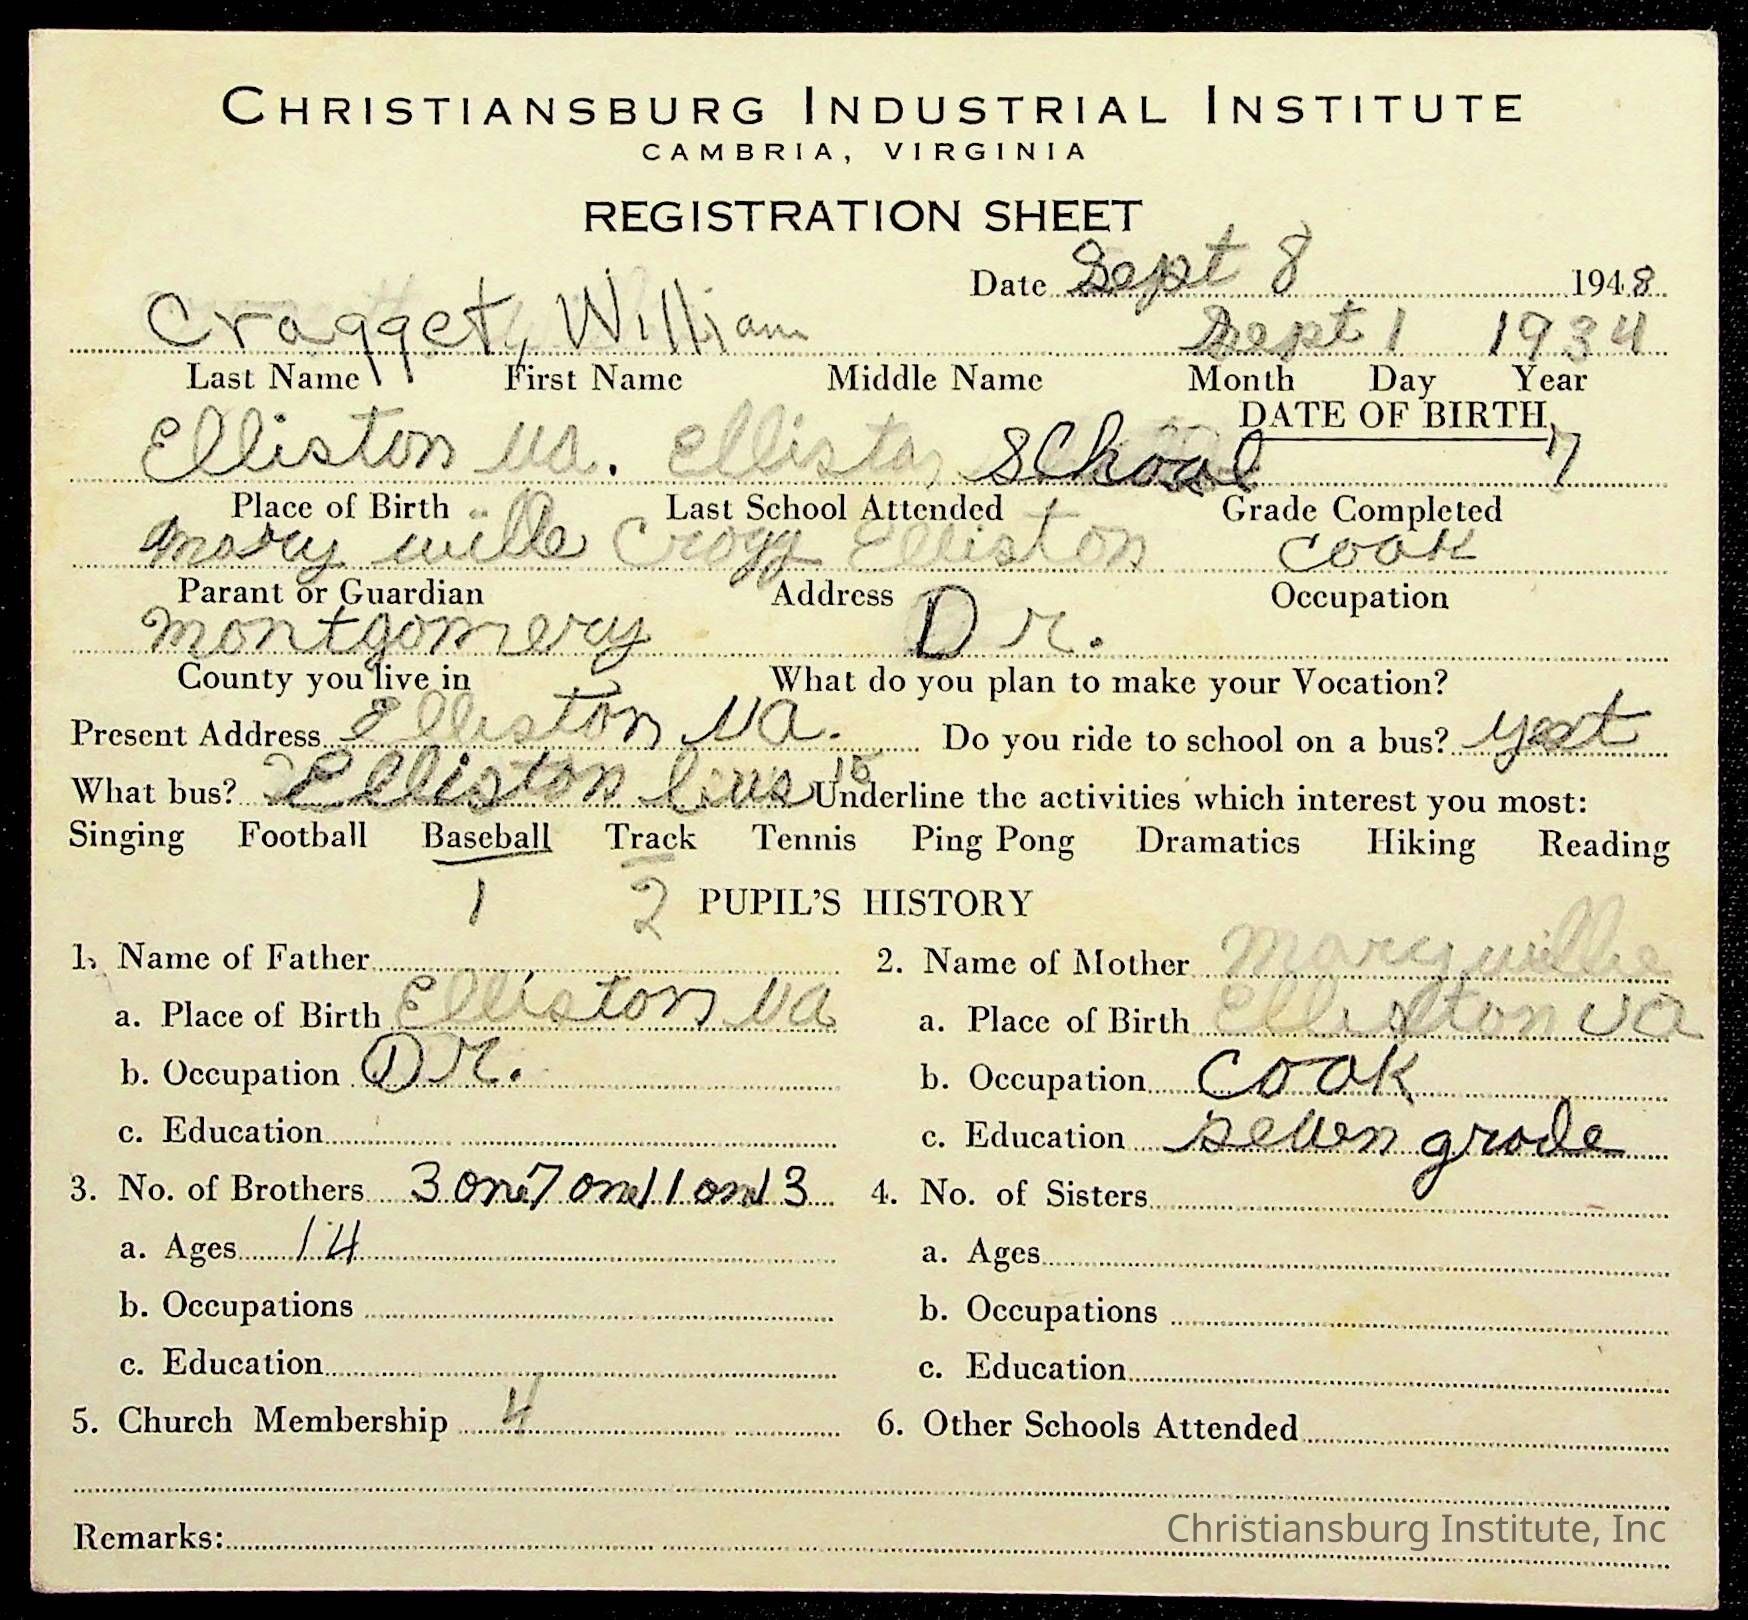 CHRISTIANSBURG INDUSTRIAL INSTITUTE
CAMBRIA, VIRGINIA
REGISTRATION SHEET
Date Sept 8 1948
Cragget, William Sept 1 1934
Last Name First Name Middle Name Month Day Year
DATE OF BIRTH
Elliston Va. Elliston School 7
Place of Birth Last School Attended Grade Completed
mary willie Cragg Elliston cook
Parant or Guardian Address Occupation
montgomery Dr.
County you live in What do you plan to make your Vocation?
Present Address Elliston Va. Do you ride to school on a bus?
What bus? Elliston bus 15 Underline the activities which interest you most:
Singing Football Baseball Track Tennis Ping Pong Dramatics Hiking Reading
1 2 PUPIL'S HISTORY
1. Name of Father 2. Name of Mother Mary willie
a. Place of Birth Elliston Va a. Place of Birth Elliston Va
b. Occupation Dr. b. Occupation Cook
c. Education c. Education seven grade
3. No. of Brothers 3 one 7 one 11 one 13 4. No. of Sisters
a. Ages 14 a. Ages
b. Occupations b. Occupations
c. Education c. Education
5. Church Membership 4 6. Other Schools Attended
Remarks:
Christiansburg Institute, Inc